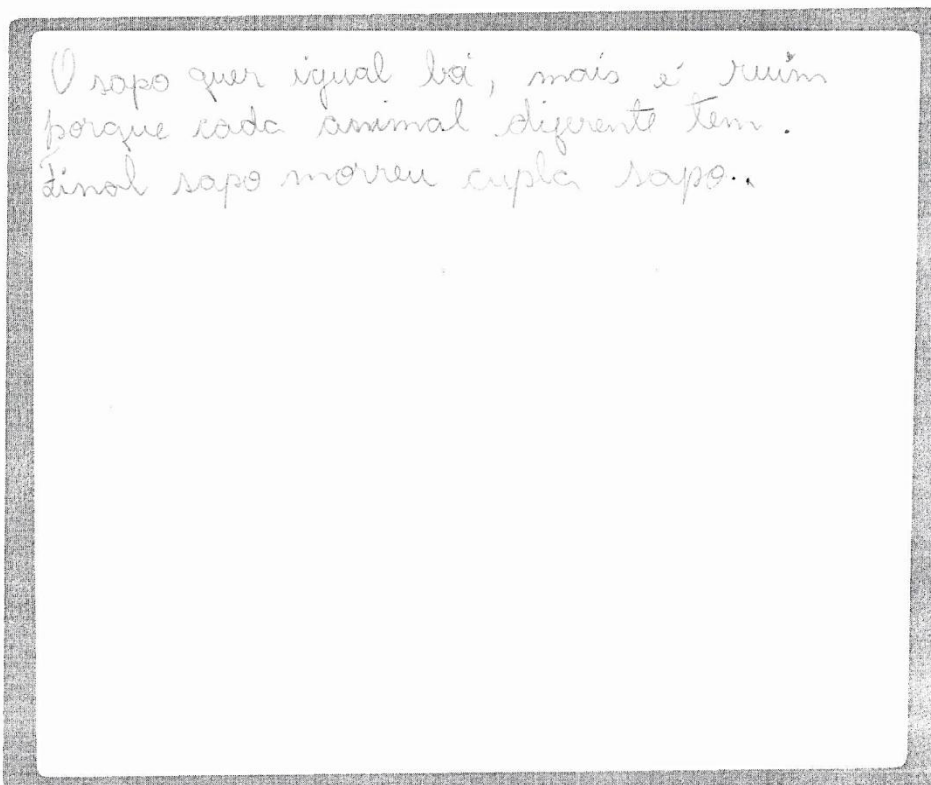 O sapo quer igual boi, mais é ruim
porque cada animal diferente tem.
Final sapo morreu cupla sapo..